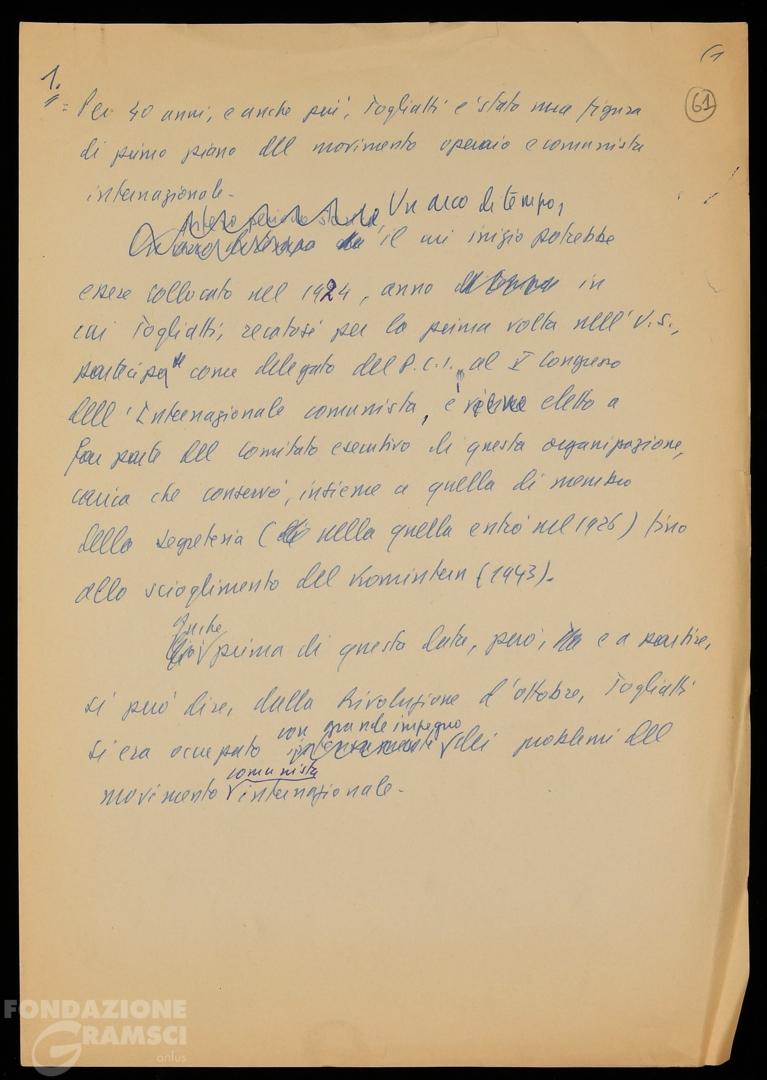 61
1.
= Per 40 anni, e anche più, Togliatti è stato una figura
di primo piano del movimento operaio e comunista
internazionale.
Un arco di tempo,
il cui inizio potrebbe
essere collocato nel 1924, anno in
cui Togliatti, recatosi per la prima volta nell'U.S.,
partecipa come delegato del P.C.I. al V Congresso
dell'Internazionale comunista, e viene eletto a
far parte del Comitato esecutivo di questa organizzazione,
carica che conservò, insieme a quella di membro
della segreteria (nella quella entrò nel 1926) fino
allo scioglimento del Komintern (1943).
Anche
prima di questa data, però, e a partire,
si può dire, dalla Rivoluzione d'ottobre, Togliatti
con grande impegno
si era occupato dei problemi del
comunista
movimento internazionale.
FONDAZIONE
GRAMSCI
onlus